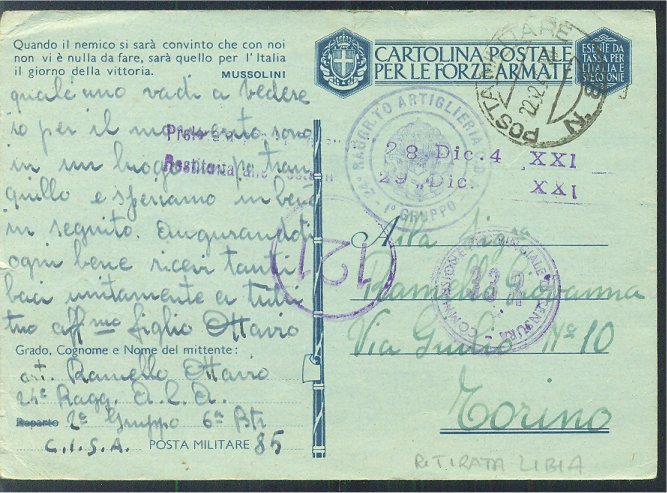 Quando il nemico si sarà convinto che con noi
non vi è nulla da fare, sarà quello per l'Italia
il giorno della vittoria. MUSSOLINI
qualcuno vadi a vedere
io per il momento sono
in un luogo tran
quillo e speriamo in bene
in seguito. Augurandoti
ogni bene ricevi tanti
baci unitamente a tutti
tuo affmo figlio Ottavio
Grado, Cognome e Nome del mittente:
art. Ramello Ottavio
24° Ragg. A.L.A.
Reparto 2° Gruppo 6a Btr
C.I.S.A. POSTA MILITARE 85
CARTOLINA POSTALE
PER LE FORZE ARMATE
ESENTE DA
TASSA PER
L'ITALIA E
COLONIE
POSTA MILITARE
24° RAGGR.TO ARTIGLIERIA
1° GRUPPO
28. Dic. 4 XXI
29. Dic. XXI
121
COMMISSIONE PROVINCIALE CENSURA
33 2
Alla Sig.ra
Ramello Giovanna
Via Giulio N° 10
Torino
RITIRATA LIBIA